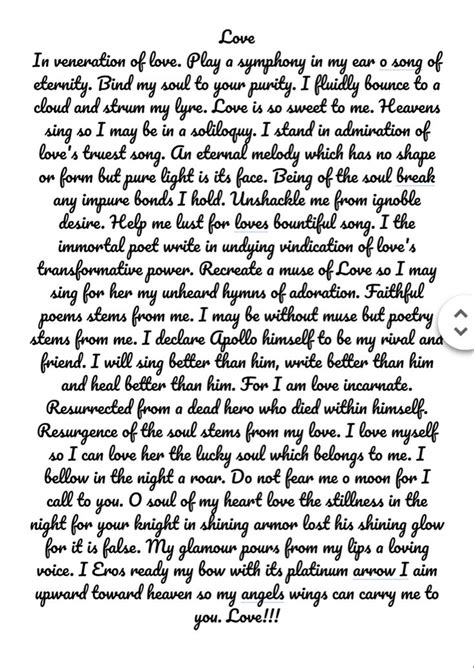 Love
In veneration of love. Play a symphony in my ear o song of
eternity. Bind my soul to your purity. I fluidly bounce to a
cloud and strum my lyre. Love is so sweet to me. Heavens
sing so I may be in a soliloquy. I stand in admiration of
love's truest song. An eternal melody which has no shape
or form but pure light is its face. Being of the soul break
any impure bonds I hold. Unshackle me from ignoble
desire. Help me lust for loves bountiful song. I the
immortal poet write in undying vindication of love's
transformative power. Recreate a muse of Love so I may
sing for her my unheard hymns of adoration. Faithful
poems stems from me. I may be without muse but poetry
stems from me. I declare Apollo himself to be my rival and
friend. I will sing better than him, write better than him
and heal better than him. For I am love incarnate.
Resurrected from a dead hero who died within himself.
Resurgence of the soul stems from my love. I love myself
so I can love her the lucky soul which belongs to me. I
bellow in the night a roar. Do not fear me o moon for I
call to you. O soul of my heart love the stillness in the
night for your knight in shining armor lost his shining glow
for it is false. My glamour pours from my lips a loving
voice. I Eros ready my bow with its platinum arrow I aim
upward toward heaven so my angels wings can carry me to
you. Love!!!